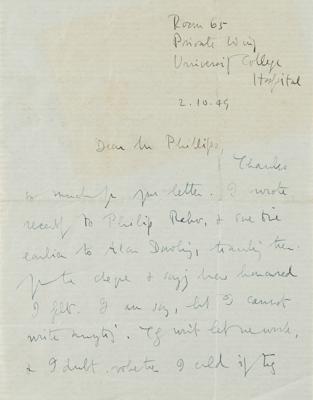 Room 65
Private Wing
University College
Hospital
2.10.49
Dear Mr Phillips,
Thanks
so much for your letter. I wrote
recently to Philip Rahv, & some time
earlier to Alan Dowling, thanking them
for the cheque & saying how honoured
I felt. I am sorry, but I cannot
write anything. They won't let me work,
& I doubt whether I could if they